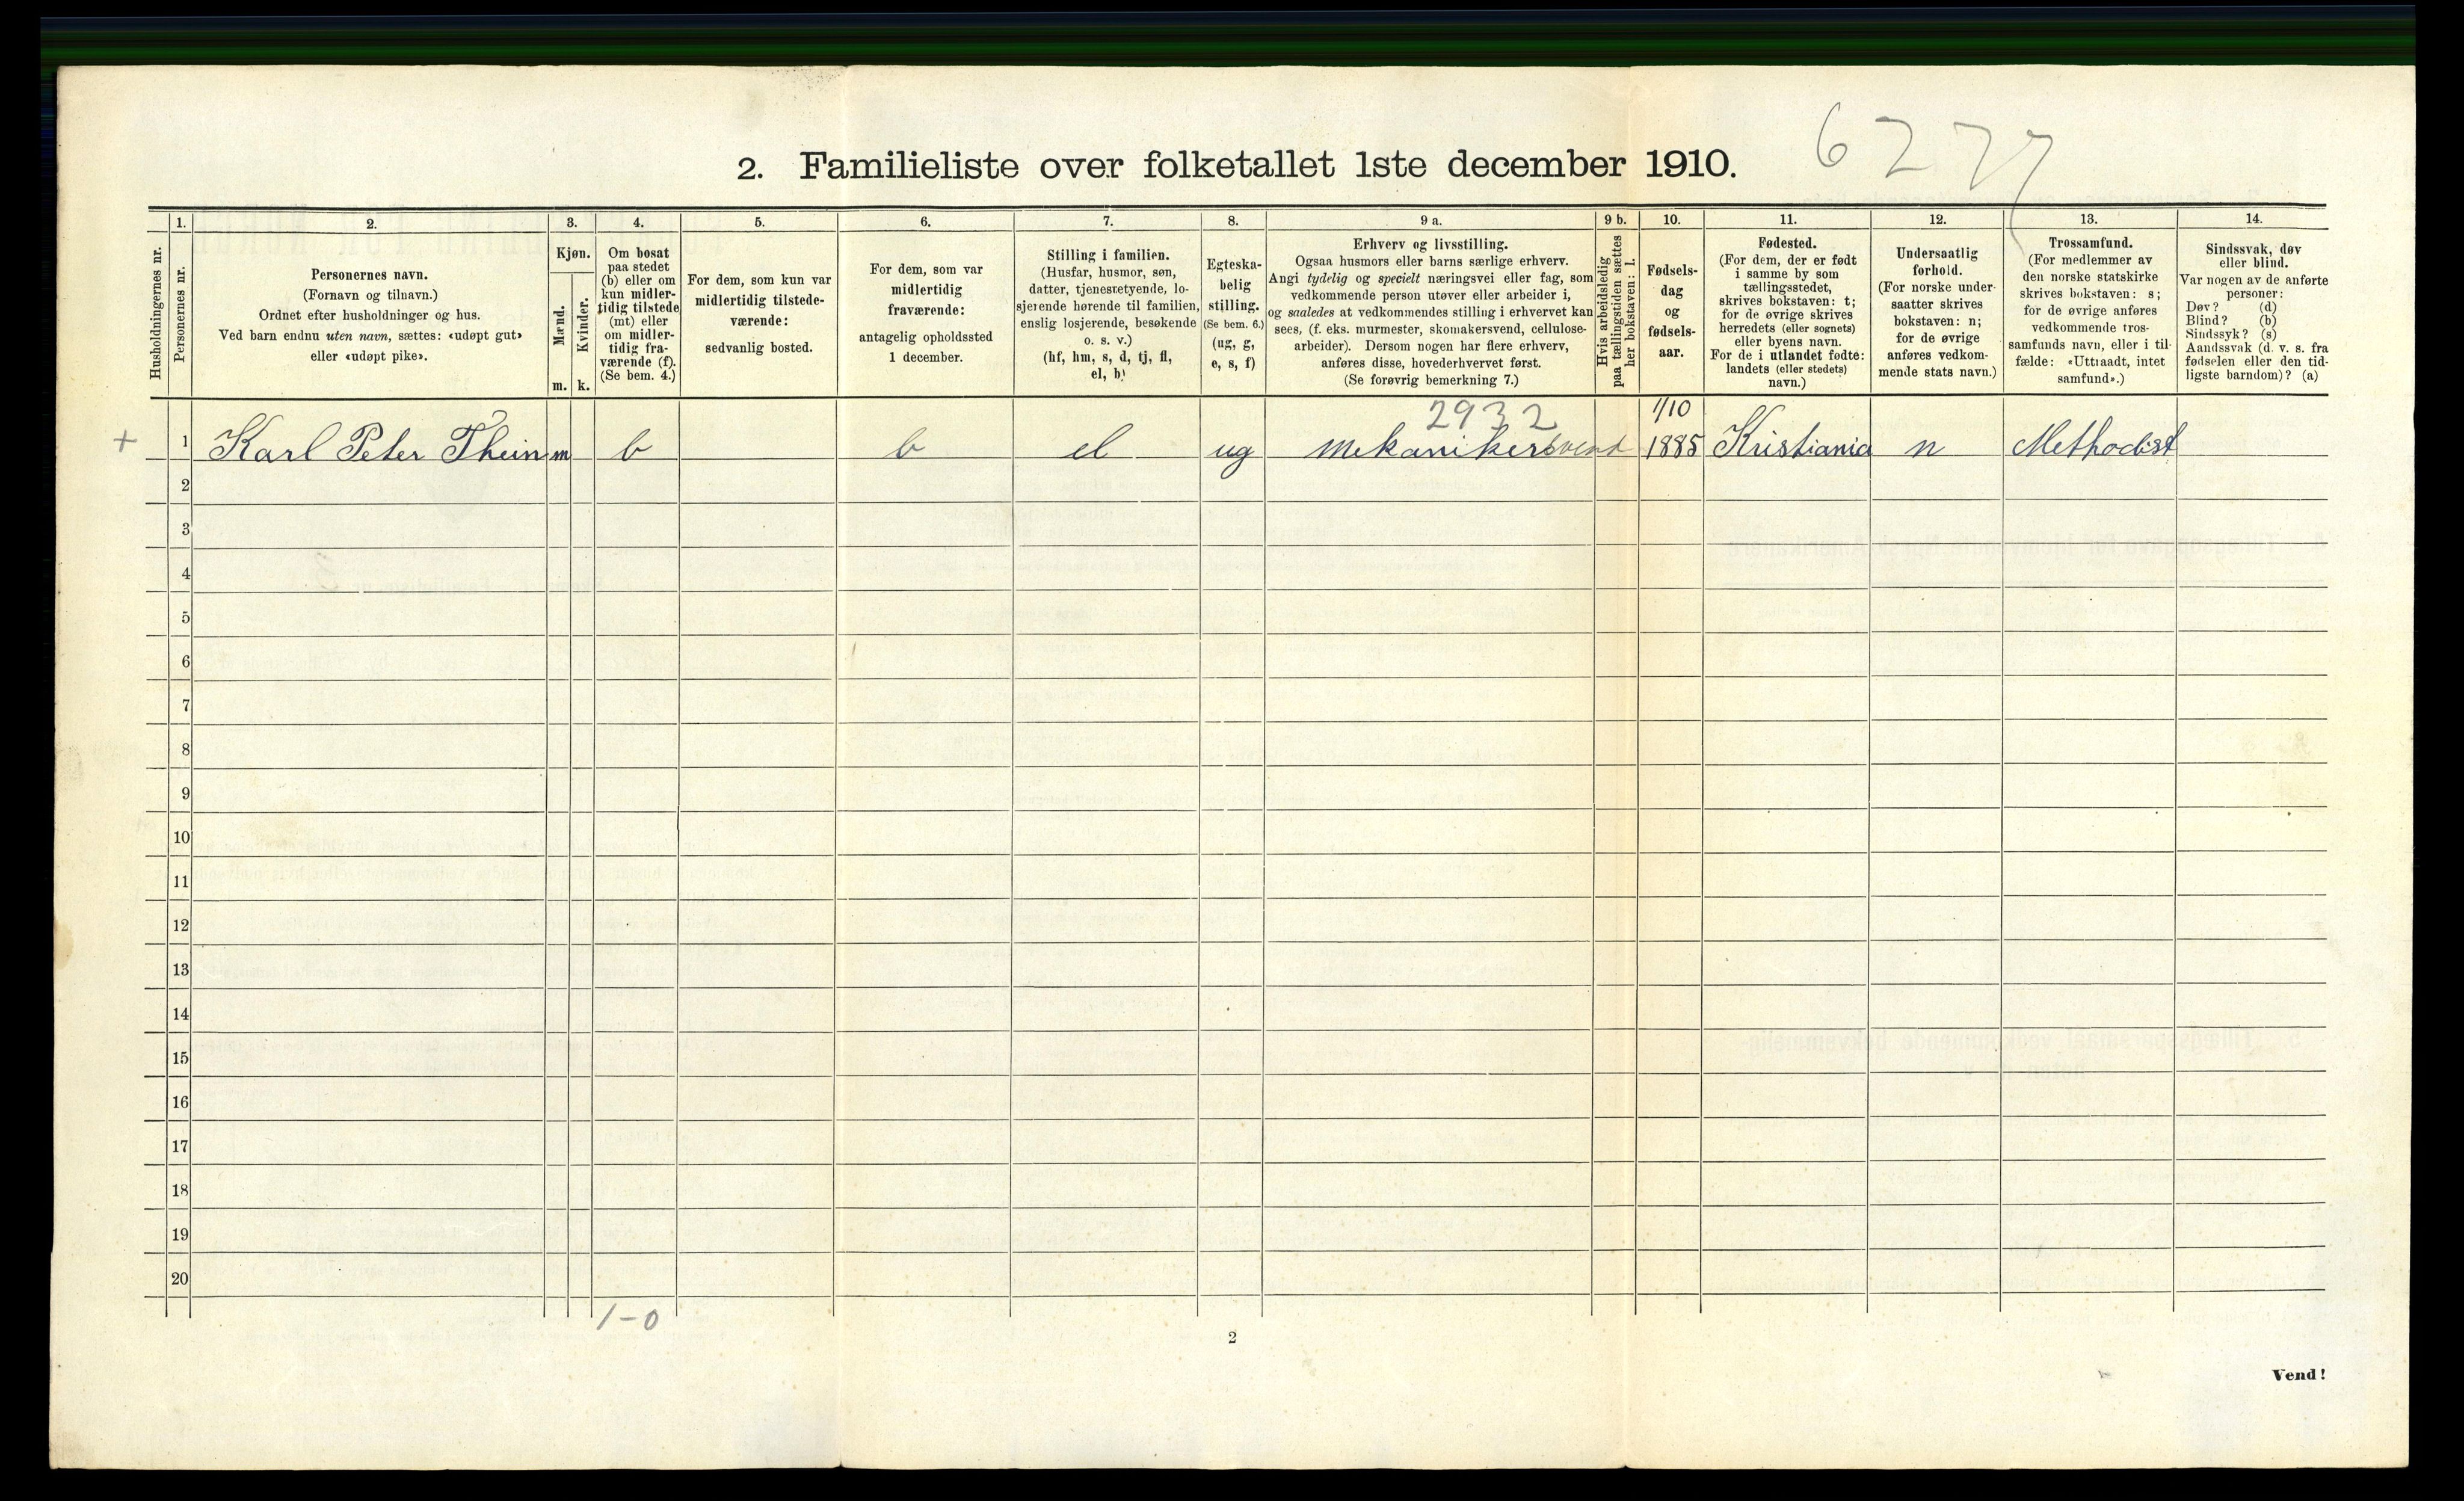 6277
2. Familieliste over folketallet 1ste december 1910.
Husholdningernes nr.
1.
Personernes nr.
2.
Personernes navn.
(Fornavn og tilnavn.)
Ordnet efter husholdninger og hus.
Ved barn endnu uten navn, sættes: «udøpt gut»
eller «udøpt pike».
3.
Kjøn.
Mænd.
m.
Kvinder.
k.
4.
Om bosat
paa stedet
(b) eller om
kun midler-
tidig tilstede
(mt) eller
om midler-
tidig fra-
værende (f).
(Se bem. 4.)
5.
For dem, som kun var
midlertidig tilstede-
værende:
sedvanlig bosted.
6.
For dem, som var
midlertidig
fraværende:
antagelig opholdssted
1 december.
7.
Stilling i familien.
(Husfar, husmor, søn,
datter, tjenestetyende, lo-
sjerende hørende til familien,
enslig losjerende, besøkende
o. s. v.)
(hf, hm, s, d, tj, fl,
el, b)
8.
Egteska-
belig
stilling.
(Se bem. 6.)
(ug, g,
e, s, f)
9 a.
Erhverv og livsstilling.
Ogsaa husmors eller barns særlige erhverv.
Angi tydelig og specielt næringsvei eller fag, som
vedkommende person utøver eller arbeider i,
og saaledes at vedkommendes stilling i erhvervet kan
sees, (f. eks. murmester, skomakersvend, cellulose-
arbeider). Dersom nogen har flere erhverv,
anføres disse, hovederhvervet først.
(Se forøvrig bemerkning 7.)
9 b.
Hvis arbeidsledig
paa tællingstiden sættes
her bokstaven: l.
10.
Fødsels-
dag
og
fødsels-
aar.
11.
Fødested.
(For dem, der er født
i samme by som
tællingsstedet,
skrives bokstaven: t;
for de øvrige skrives
herredets (eller sognets)
eller byens navn.
For de i utlandet fødte:
landets (eller stedets)
navn.)
12.
Undersaatlig
forhold.
(For norske under-
saatter skrives
bokstaven: n;
for de øvrige
anføres vedkom-
mende stats navn.)
13.
Trossamfund.
(For medlemmer av
den norske statskirke
skrives bokstaven: s;
for de øvrige anføres
vedkommende tros-
samfunds navn, eller i til-
fælde: «Uttraadt, intet
samfund».)
14.
Sindssvak, døv
eller blind.
Var nogen av de anførte
personer:
Døv? (d)
Blind? (b)
Sindssyk? (s)
Aandssvak (d. v. s. fra
fødselen eller den tid-
ligste barndom)? (a)
2932 1/10
+ 1 Karl Peter Thein m b b el ug Mekanikersvend 1885 Kristiania n Methodist
2
3
4
5
6
7
8
9
10
11
12
13
14
15
16
17
18
19
20
1-0
2
Vend!